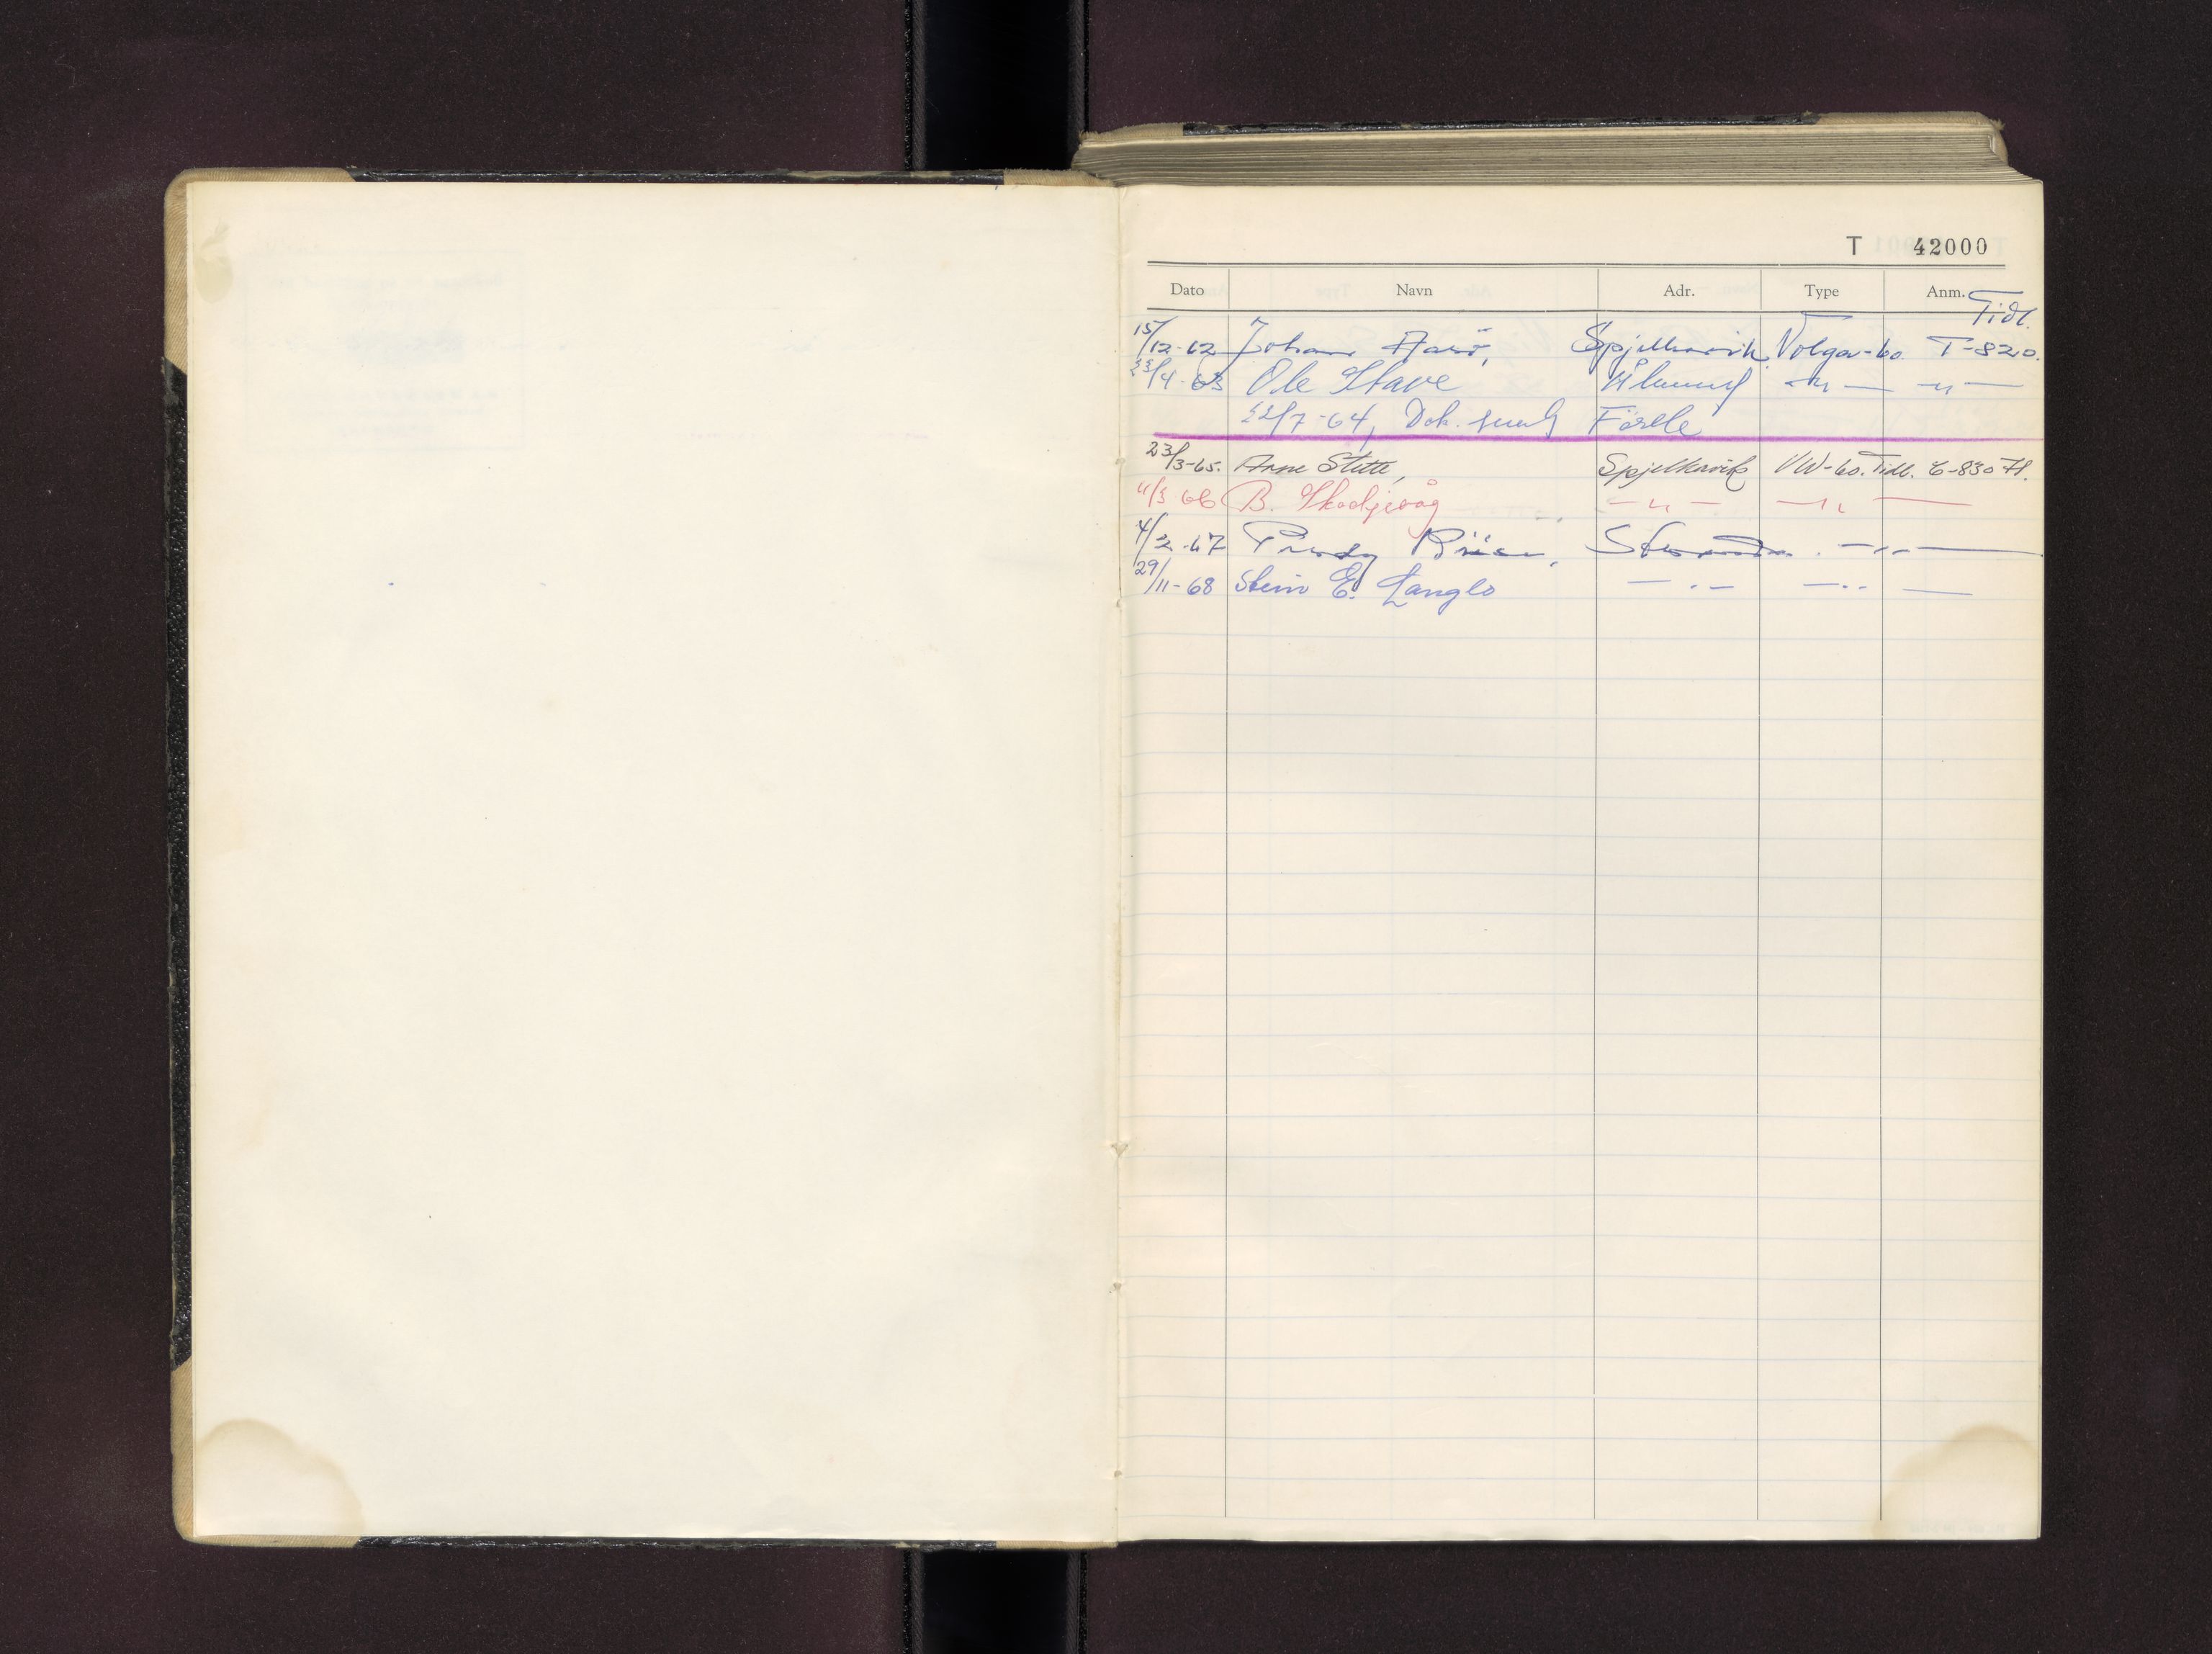 T 42000
Dato Navn Adr. Type Anm. Tidl.
15/12-62 Johan Aasø, Spjelkavik Volga-60 T-820.
23/4-63 Ole Stave — " — — " —
22/7-64, Dok. sendt Førde
23/3-65. Arne Stette, Spjelkavik VW-60. Tidl. C-830 71.
11/3 66 B. Skodjevåg — " — — " —
4/2-67 Riise, Stranda. — " —
29/11-68 Stein E. Langlo — " — — " —